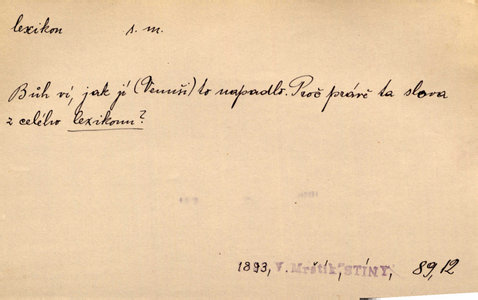 lexikon s. m.
Bůh ví, jak jí (Venuši) to napadlo. Proč právě ta slova
z celého lexikonu?
1893, V. Mrštík, STÍNY, 89,12